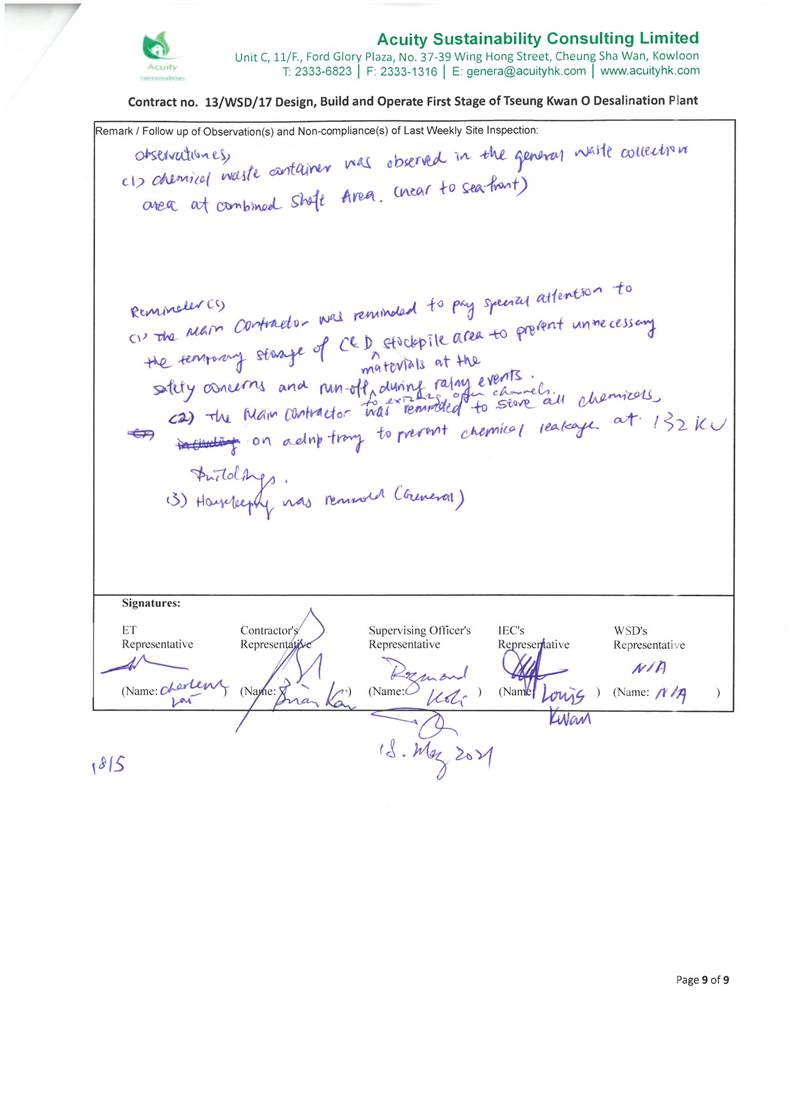 Acuity Sustainability Consulting Limited
Unit C, 11/F., Ford Glory Plaza, No. 37-39 Wing Hong Street, Cheung Sha Wan, Kowloon
T: 2333-6823 | F: 2333-1316 | E: genera@acuityhk.com | www.acuityhk.com
Acuity
Contract no. 13/WSD/17 Design, Build and Operate First Stage of Tseung Kwan O Desalination Plant
Remark / Follow up of Observation(s) and Non-compliance(s) of Last Weekly Site Inspection:
(1) chemical waste container was observed in the general waste collection
area at combined Shaft Area. (near to seafront)
Reminder(s)
(1) The Main Contractor was reminded to pay special attention to
the temporary storage of C&D stockpile area to prevent unnecessary
materials at the
safety concerns and run-off, during rainy events.
to existing open channels.
(2) The Main Contractor was reminded to store all chemicals,
on a drip tray to prevent chemical leakage at 132 KV
Buildings.
(3) Housekeeping was remind (General)
Signatures:
ET Representative
Contractor's Representative
Supervising Officer's Representative
IEC's Representative
WSD's Representative
N/A
(Name: )
(Name: Brian )
(Name: Raymond )
(Name: Louis Kwan )
(Name: N/A )
18. May 2021
18/5
Page 9 of 9